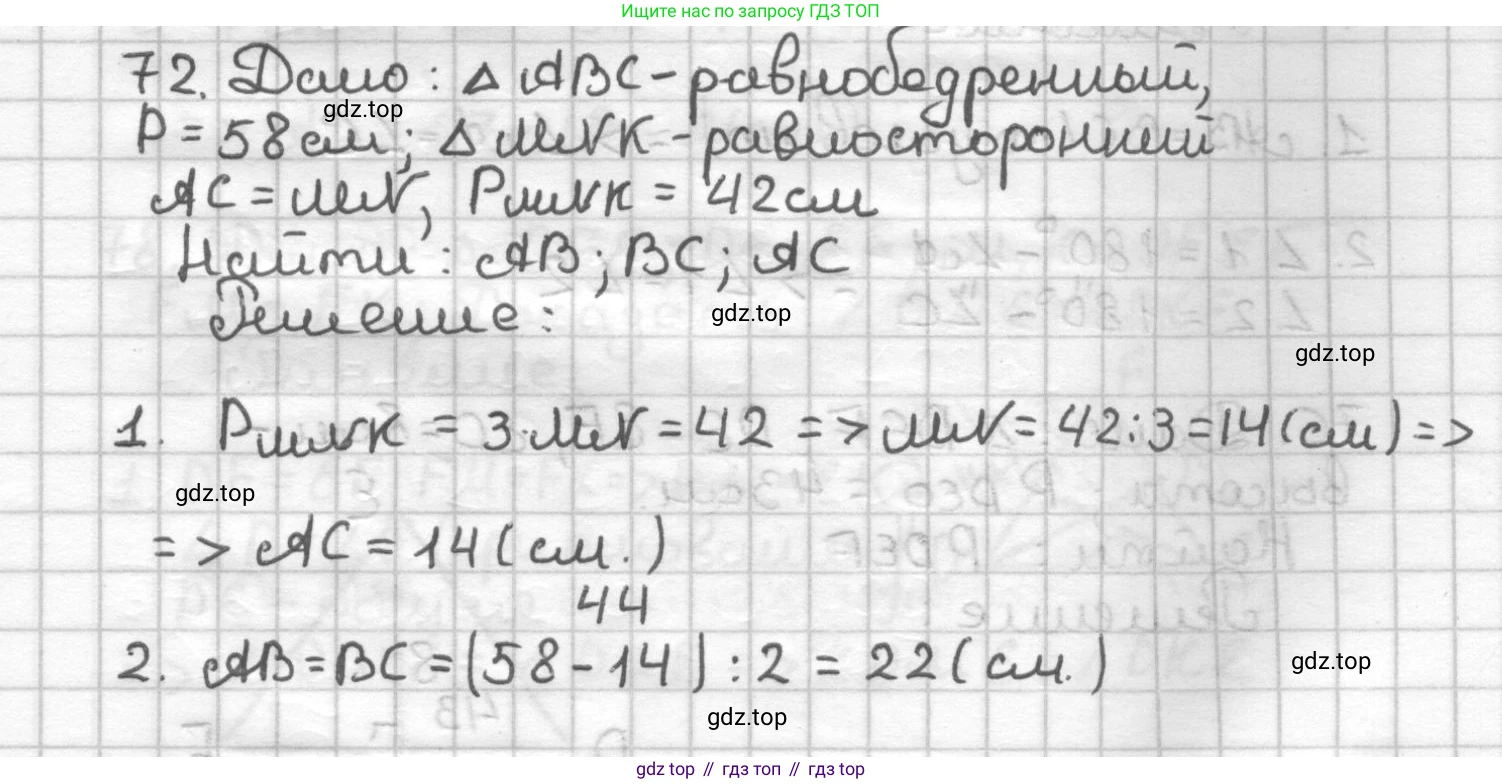 Ищите нас по запросу ГДЗ ТОП
72. Дано: Δ ABC - равнобедренный,
gdz.top
P = 58 см; Δ MNK - равносторонний
AC = MN, P MNK = 42 см
Найти: AB; BC; AC
Решение:
gdz.top
gdz.top
1. P MNK = 3·MN = 42 => MN = 42:3 = 14 (см) =>
gdz.top
=> AC = 14 (см.)
44
2. AB = BC = (58 - 14) : 2 = 22 (см.)
gdz.top
gdz.top
gdz top // гдз топ // гдз top